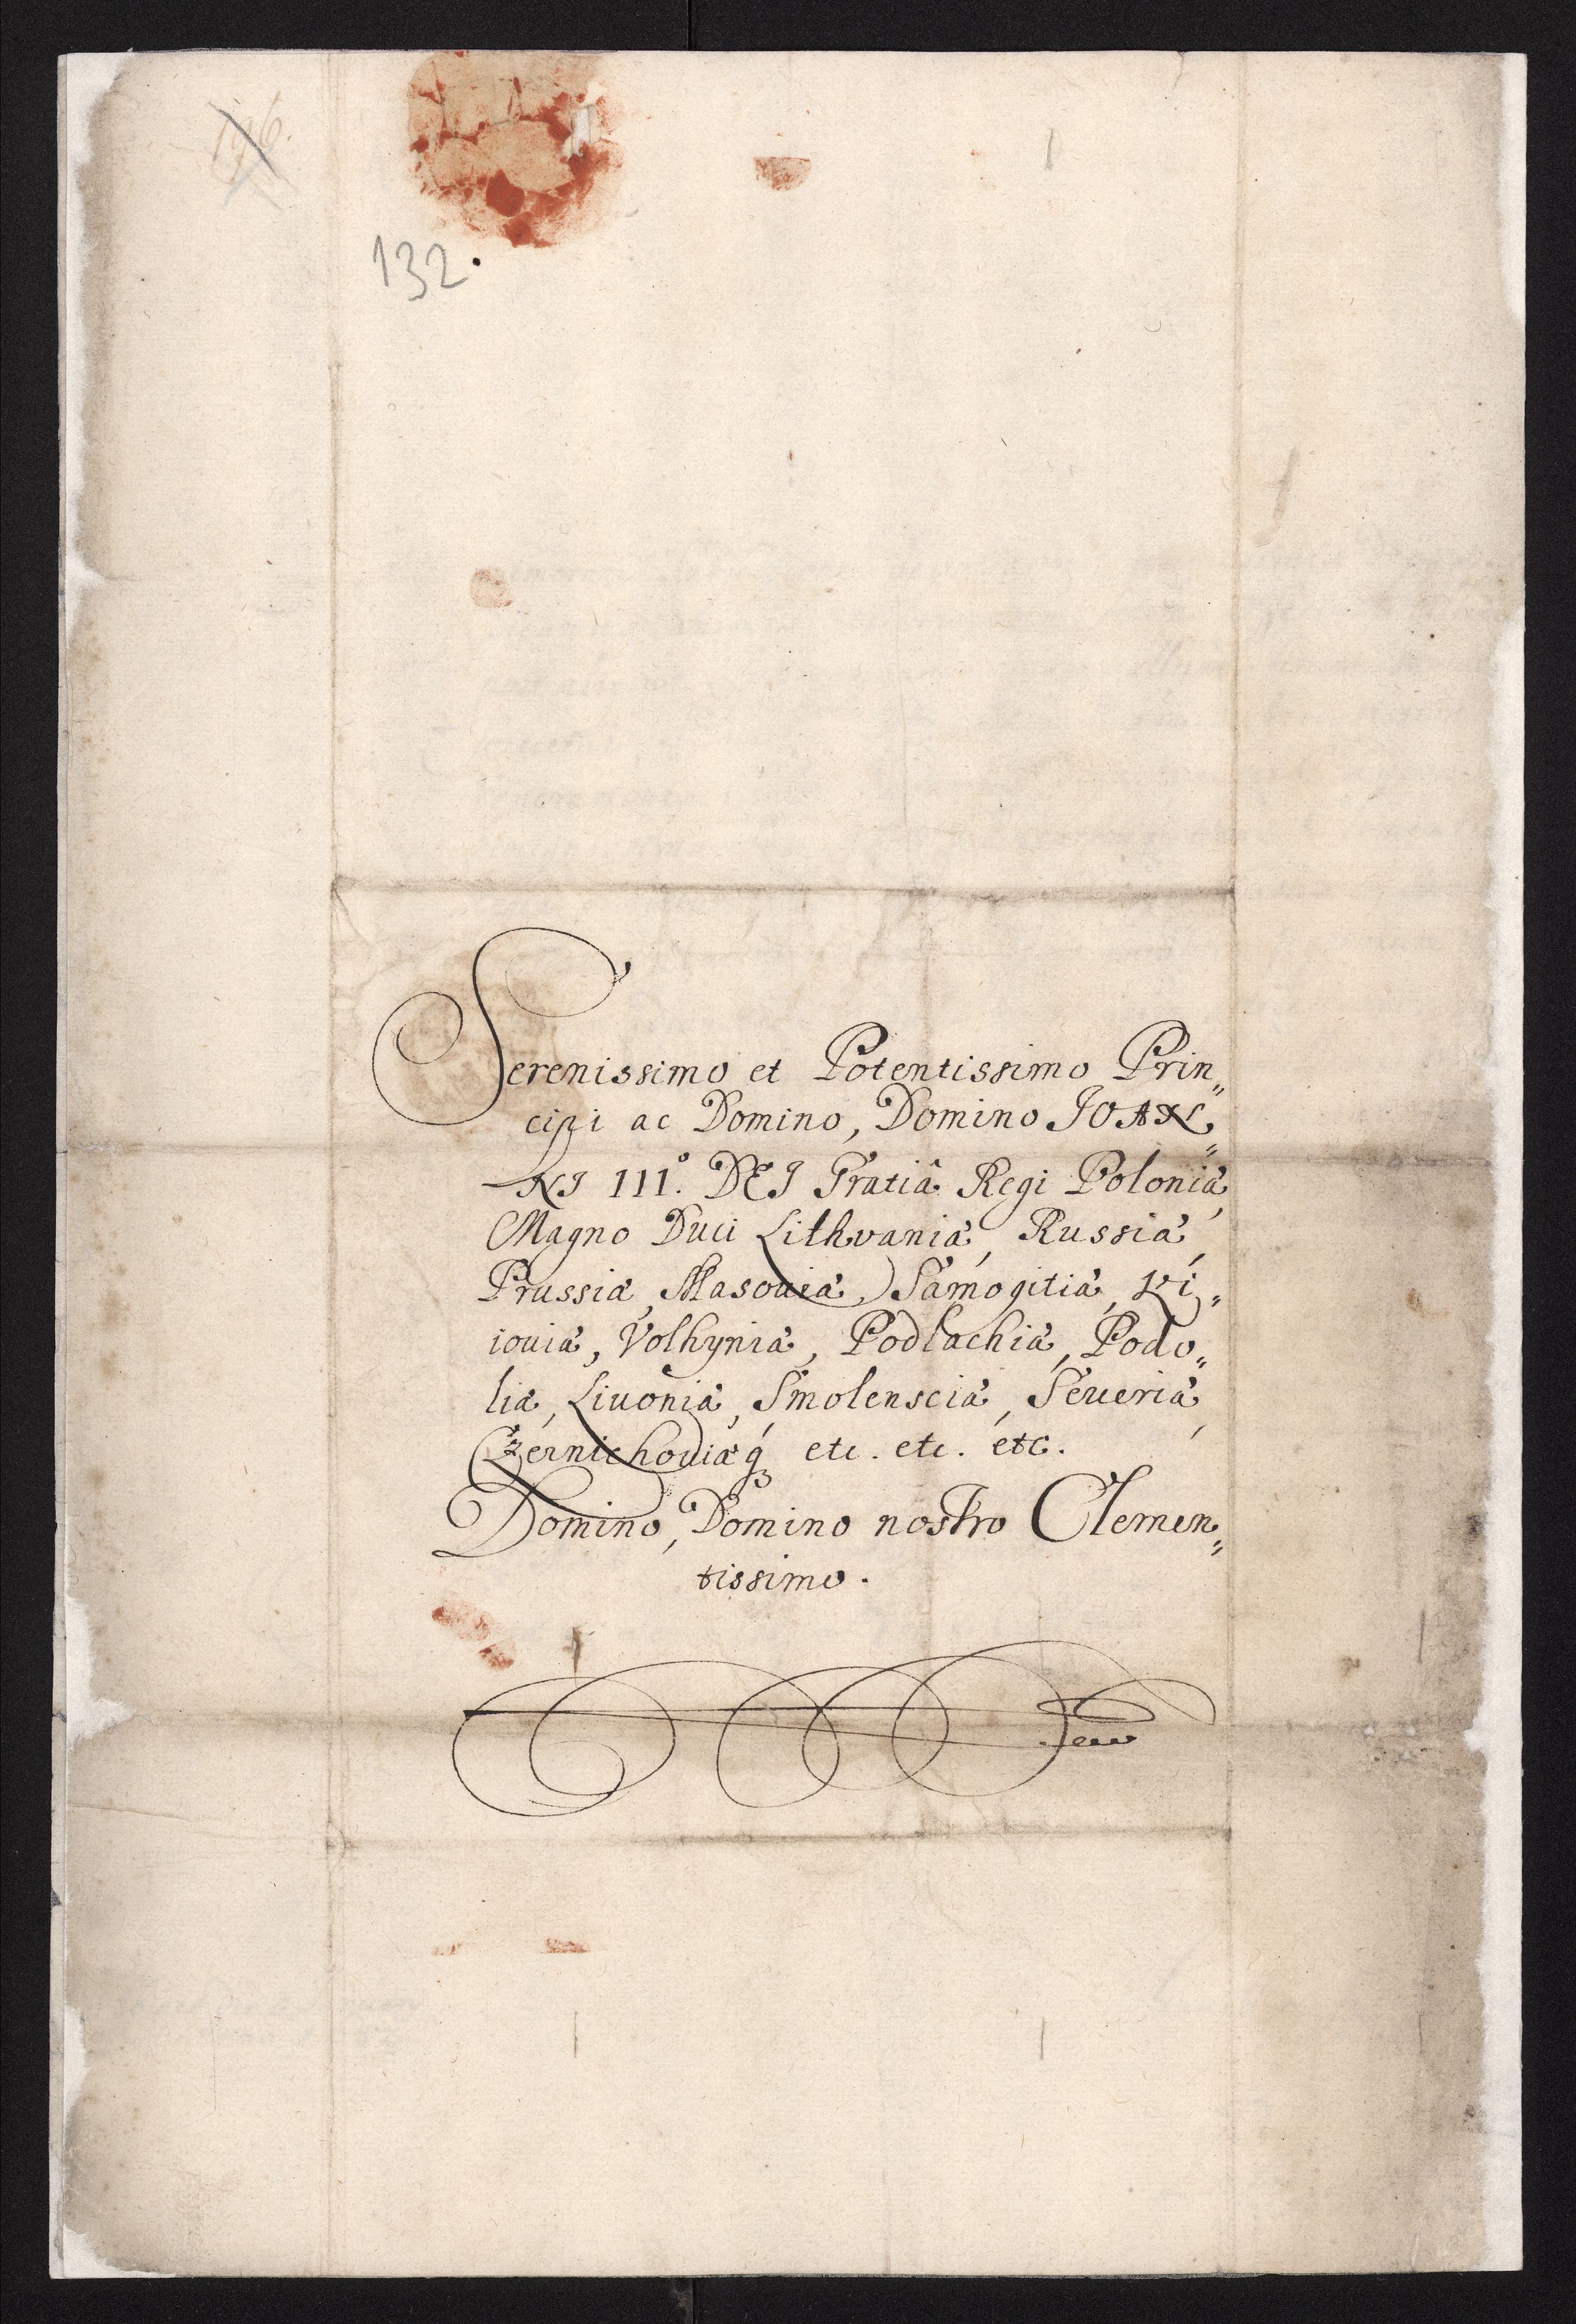 132.
Serenissimo et Potentissimo Prin„
cipi ac Domino, Domino JOAN„
NJ III.° DEJ Gratiâ Regi Poloniæ,
Magno Duci Lithvaniæ, Russiæ,
Prussiæ, Masouiæ, Samogitiæ, Ki„
iouiæ, Volhyniæ, Podlachiæ, Podo„
liæ, Liuoniæ, Smolensciæ, Seueriæ,
Czernichouiæq₃ etc. etc. etc.
Domino, Domino nostro Clemen„
tissimo.